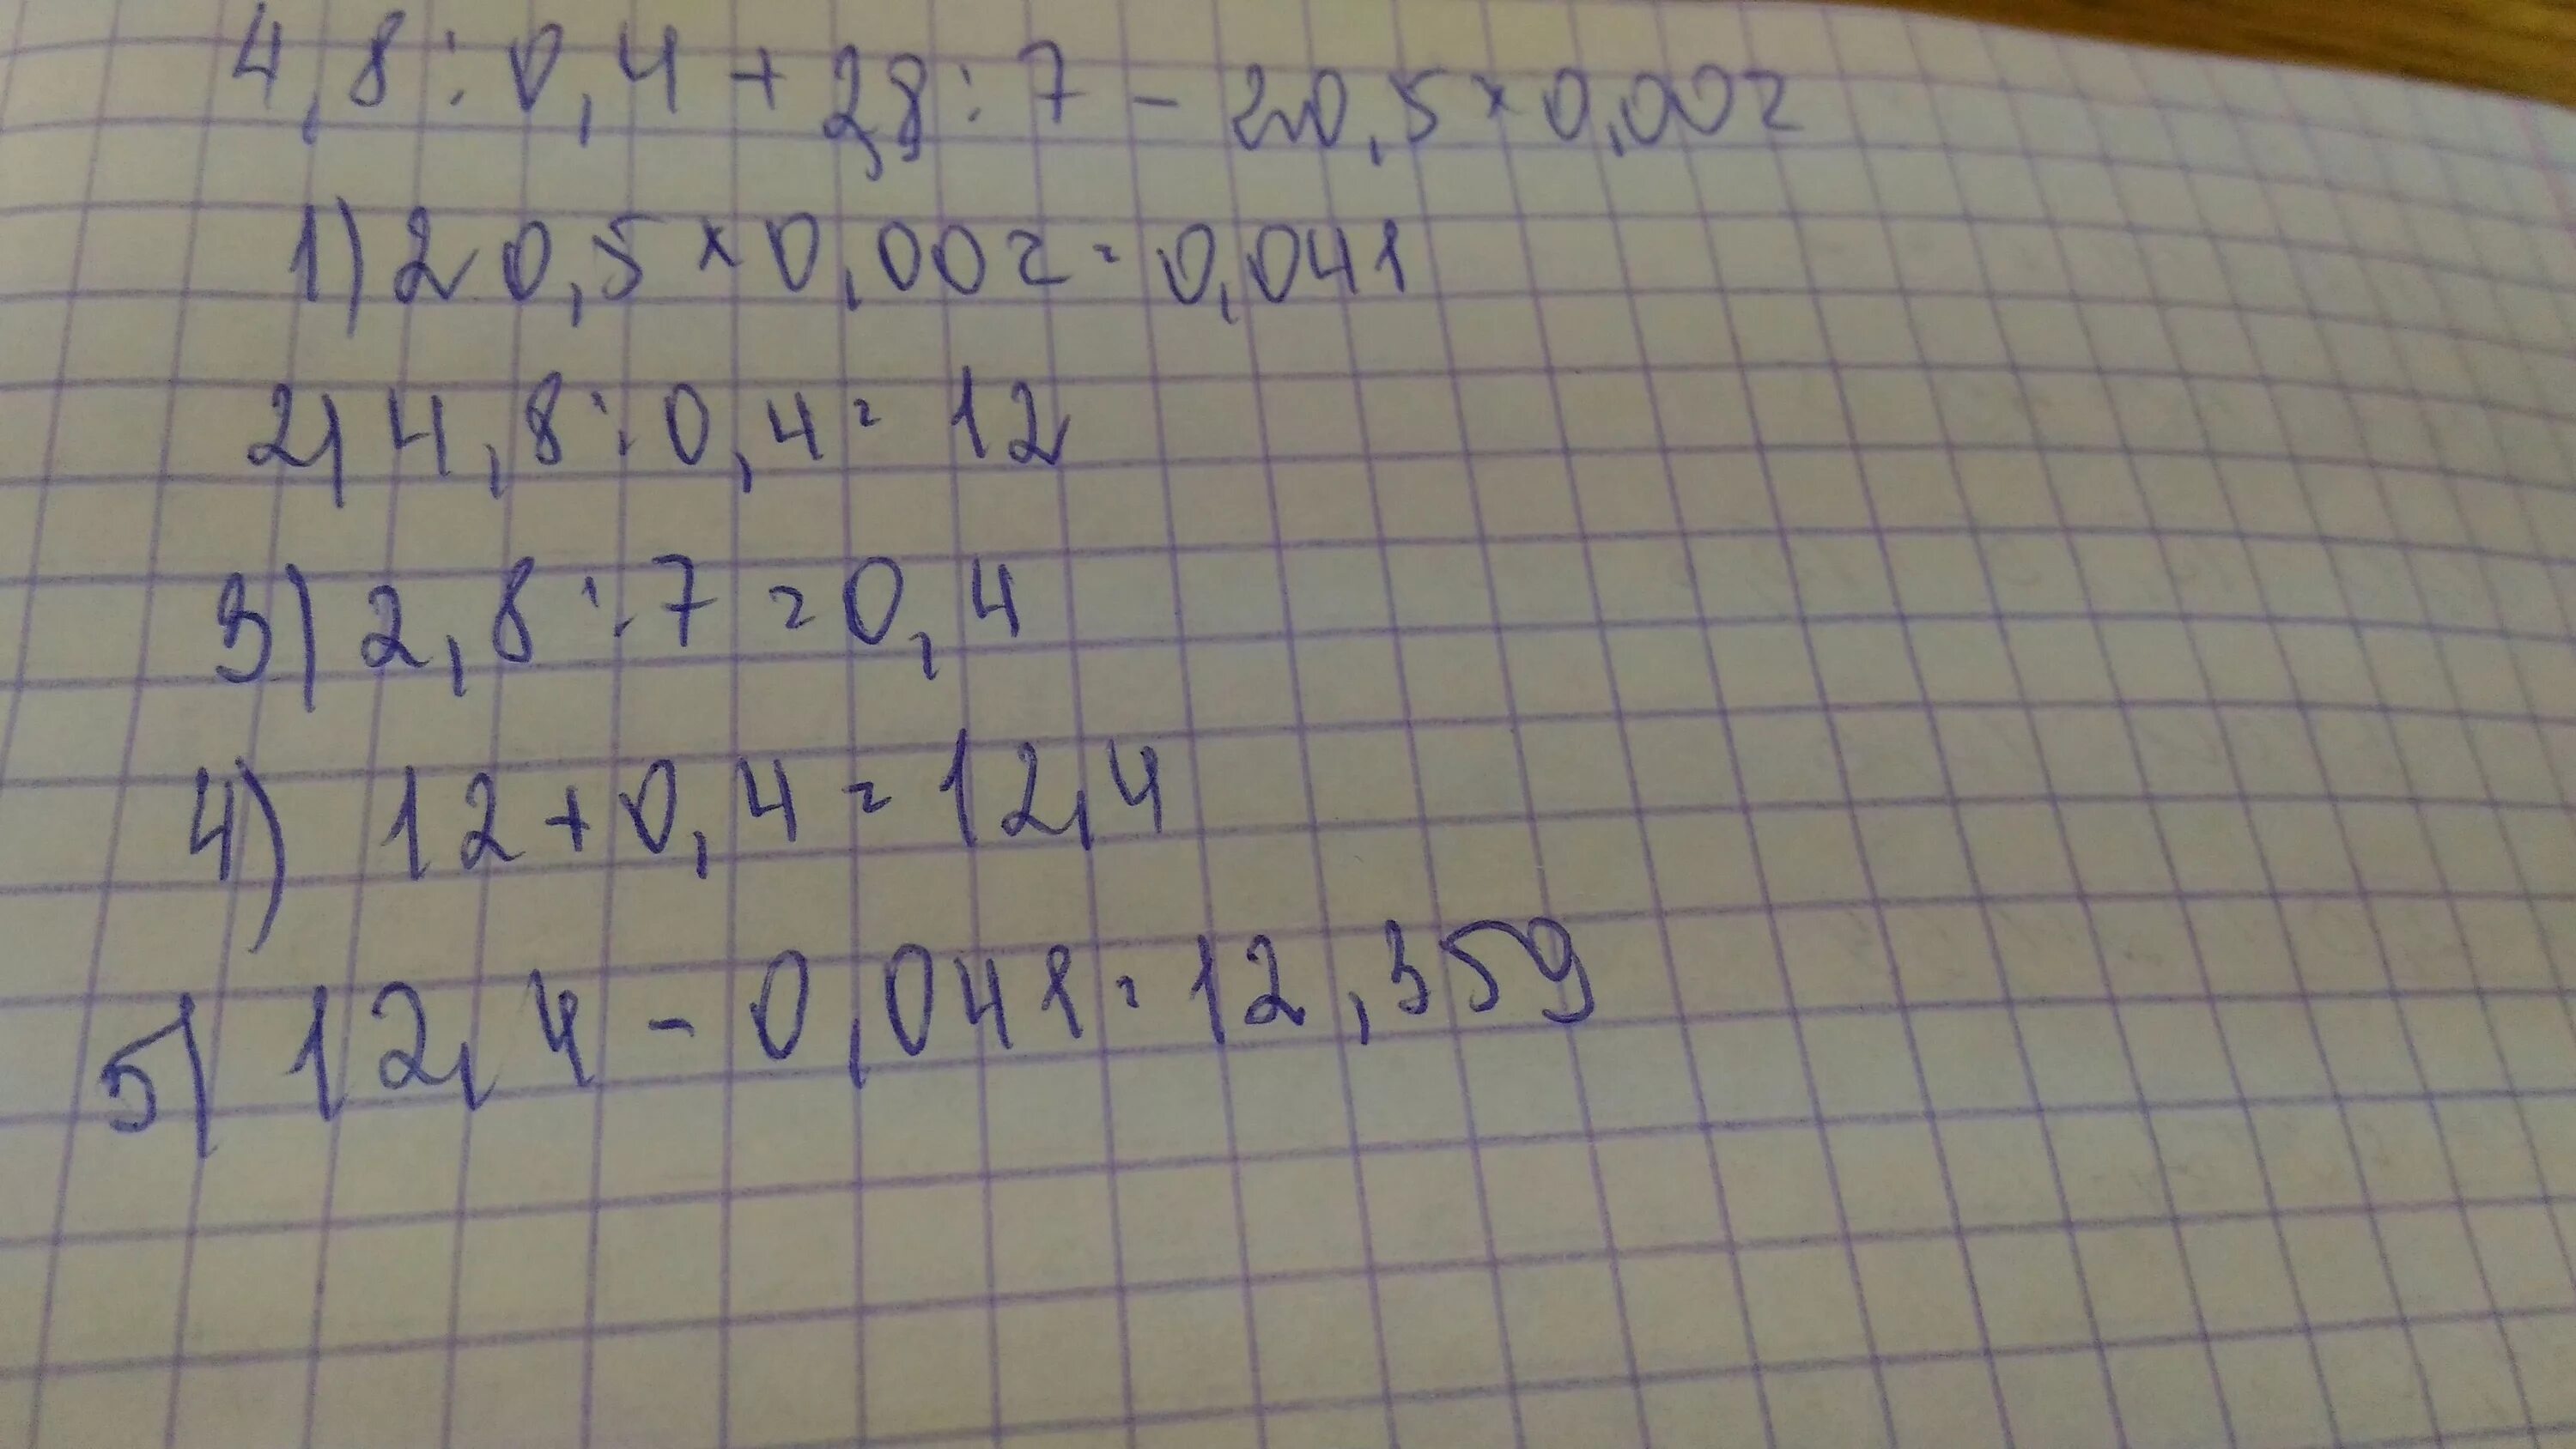 4,8:0,4+2,8:7-20,5×0,002
1) 20,5×0,002=0,041
2) 4,8:0,4=12
3) 2,8:7=0,4
4) 12+0,4=12,4
5) 12,4-0,041=12,359